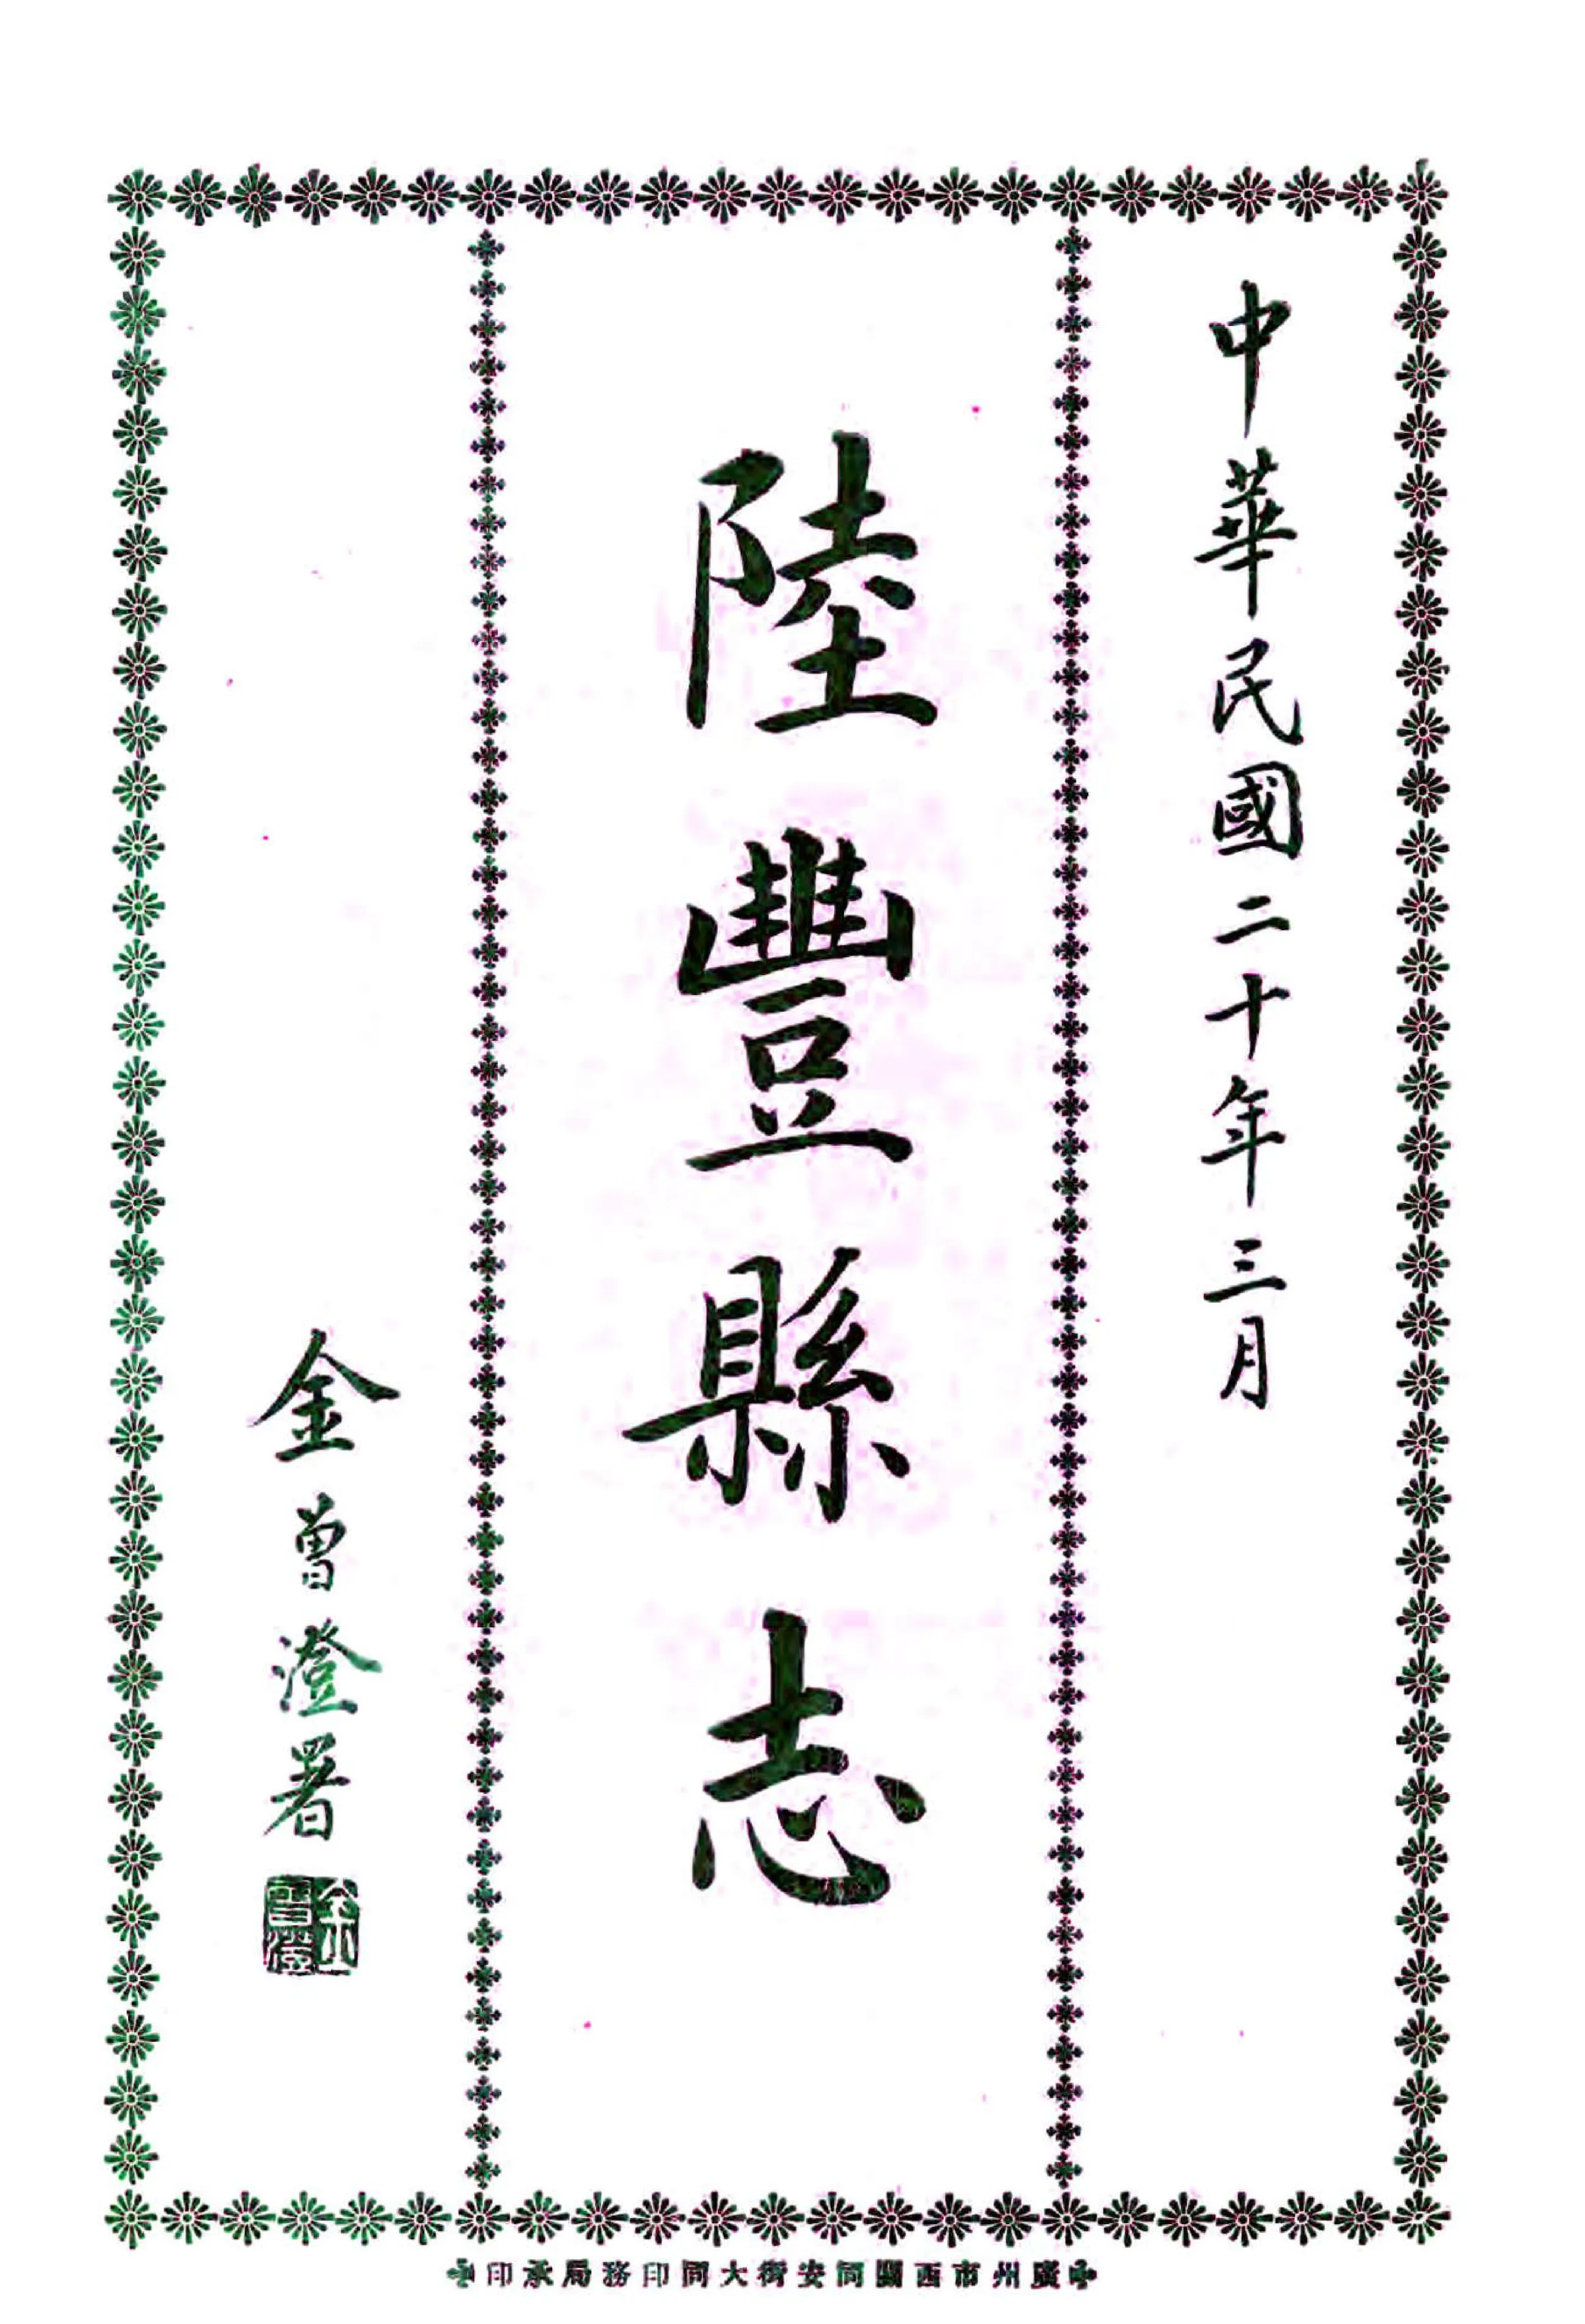 中華民國二十年三月
陸豐縣志
金曾澄署
金曾澄
廣州市西關同安街大同印務局承印